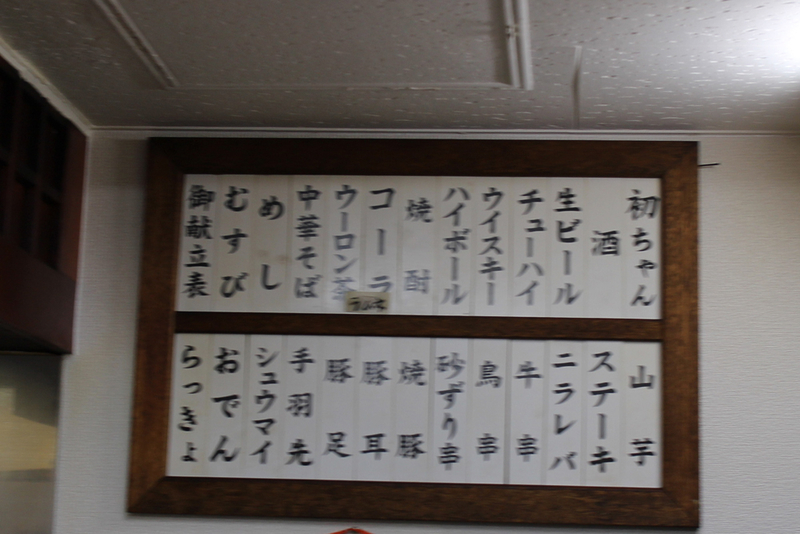 初ちゃん
酒
生ビール
チューハイ
ウイスキー
ハイボール
焼酎
コーラ
ウーロン茶
中華そば
めし
むすび
御献立表
山芋
ステーキ
ニラレバ
牛串
鳥串
砂ずり串
焼豚
豚耳
豚足
手羽先
シュウマイ
おでん
らっきょ